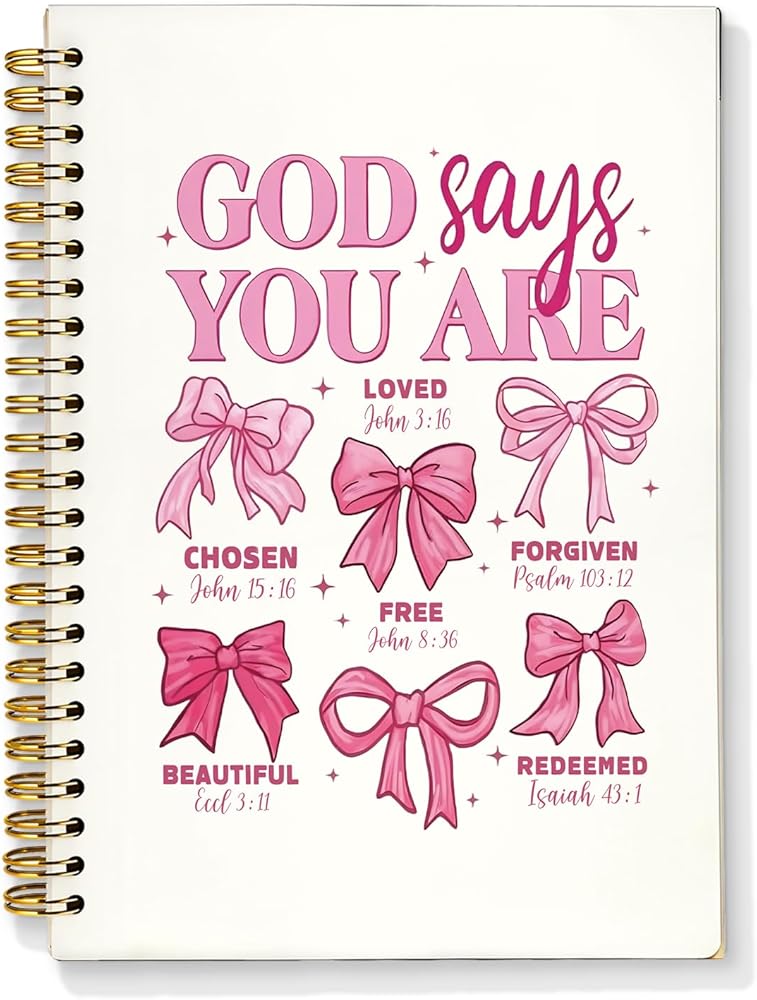 GOD says
YOU ARE
LOVED
John 3:16
CHOSEN
John 15:16
FORGIVEN
Psalm 103:12
FREE
John 8:36
BEAUTIFUL
Eccl 3:11
REDEEMED
Isaiah 43:1